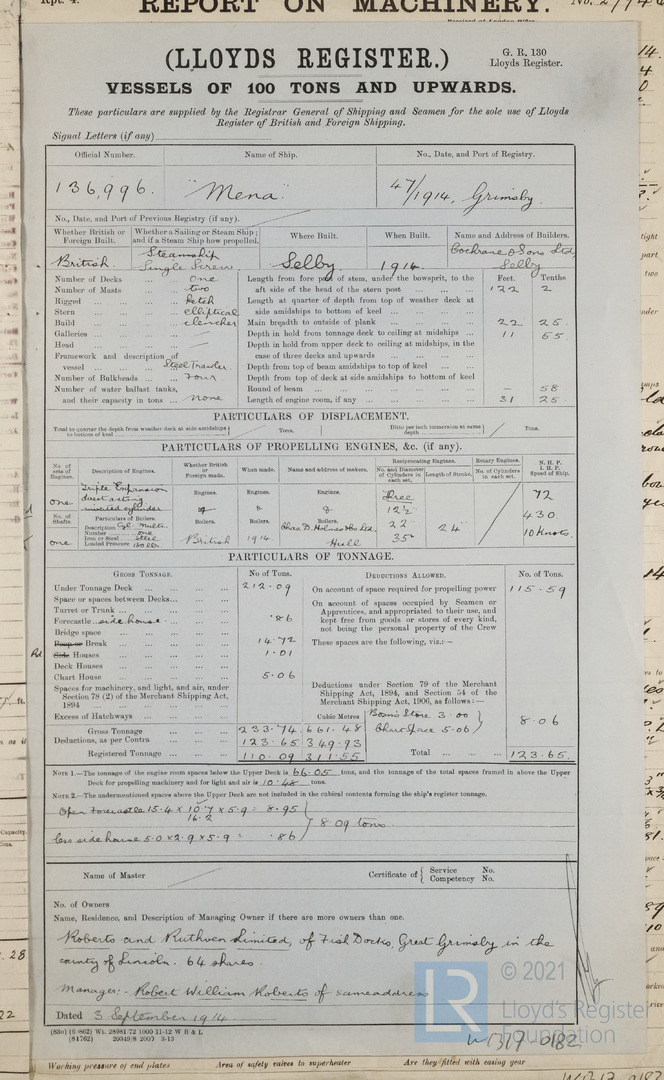 Rpt. 4.
REPORT ON MACHINERY.
(LLOYDS REGISTER.)
G. R. 130
Lloyds Register.
VESSELS OF 100 TONS AND UPWARDS.
These particulars are supplied by the Registrar General of Shipping and Seamen for the sole use of Lloyds
Register of British and Foreign Shipping.
Signal Letters (if any)
Official Number. Name of Ship. No., Date, and Port of Registry.
136,996. "Mena" 47/1914, Grimsby
No., Date, and Port of Previous Registry (if any).
Whether British or Foreign Built. Whether a Sailing or Steam Ship; and if a Steam Ship how propelled. Where Built. When Built. Name and Address of Builders.
British. Steamship Single Screw. Selby 1914. Cochrane & Sons Ltd Selby
Feet. Tenths
Number of Decks One Length from fore part of stem, under the bowsprit, to the
Number of Masts two aft side of the head of the stern post 122 2
Rigged Ketch Length at quarter of depth from top of weather deck at
Stern elliptical side amidships to bottom of keel
Build clencher Main breadth to outside of plank 22 25
Galleries Depth in hold from tonnage deck to ceiling at midships 11 65
Head Depth in hold from upper deck to ceiling at midships, in the
Framework and description of case of three decks and upwards
vessel Steel Trawler. Depth from top of beam amidships to top of keel
Number of Bulkheads Four Depth from top of deck at side amidships to bottom of keel
Number of water ballast tanks, Round of beam - 58
and their capacity in tons none Length of engine room, if any 31 25
PARTICULARS OF DISPLACEMENT.
Total to quarter the depth from weather deck at side amidships to bottom of keel Tons. Ditto per inch immersion at same depth Tons.
PARTICULARS OF PROPELLING ENGINES, &c. (if any).
No. of sets of Engines. Description of Engines. Whether British or Foreign made. When made. Name and address of makers. Reciprocating Engines. Rotary Engines. N. H. P. I. H. P. Speed of Ship.
No. and Diameter of Cylinders in each set. Length of Stroke. No. of Cylinders in each set.
One Triple Expansion direct acting inverted cylinder Engines. Engines. Engines. Three 72
12½
No. of Shafts. Particulars of Boilers. Boilers. Boilers. Boilers. 22 24 430
Description Cyl. Multi.
Number one
Iron or Steel Steel
Loaded Pressure 180 lbs.
one British 1914 Chas. D. Holmes & Co Ltd Hull 35 10 Knots.
PARTICULARS OF TONNAGE.
GROSS TONNAGE. No of Tons. DEDUCTIONS ALLOWED. No. of Tons.
Under Tonnage Deck 212.09 On account of space required for propelling power 115.59
Space or spaces between Decks On account of spaces occupied by Seamen or
Turret or Trunk Apprentices, and appropriated to their use, and
Forecastle side house. .86 kept free from goods or stores of every kind,
Bridge space not being the personal property of the Crew
Poop or Break 14.72 These spaces are the following, viz:—
Side Houses 1.01
Deck Houses
Chart House 5.06
Spaces for machinery, and light, and air, under Deductions under Section 79 of the Merchant
Section 78 (2) of the Merchant Shipping Act, Shipping Act, 1894, and Section 54 of the
1894 Merchant Shipping Act, 1906, as follows:—
Excess of Hatchways Cubic Metres Bosns Store 3.00
Gross Tonnage 233.74 661.48 Chart Space 5.06 8.06
Deductions, as per Contra 123.65 349.93
Registered Tonnage 110.09 311.55 Total 123.65.
NOTE 1.—The tonnage of the engine room spaces below the Upper Deck is 66.05 tons, and the tonnage of the total spaces framed in above the Upper
Deck for propelling machinery and for light and air is 10.48 tons.
NOTE 2.—The undermentioned spaces above the Upper Deck are not included in the cubical contents forming the ship's register tonnage.
Open Forecastle 15.4 x 10.7 x 5.9 = 8.95
16.2
8.09 tons.
less side house 5.0 x 2.9 x 5.9 = .86
Name of Master Certificate of Service No.
Competency No.
No. of Owners
Name, Residence, and Description of Managing Owner if there are more owners than one.
Roberts and Ruthven Limited, of Fish Docks, Great Grimsby in the
county of Lincoln. 64 shares.
Manager:- Robert William Roberts of same address
Dated 3 September 1914.
© 2021
LR
Lloyd's Register
Foundation
W1317-0182
Working pressure of end plates Area of safety valves to superheater Are they fitted with easing gear